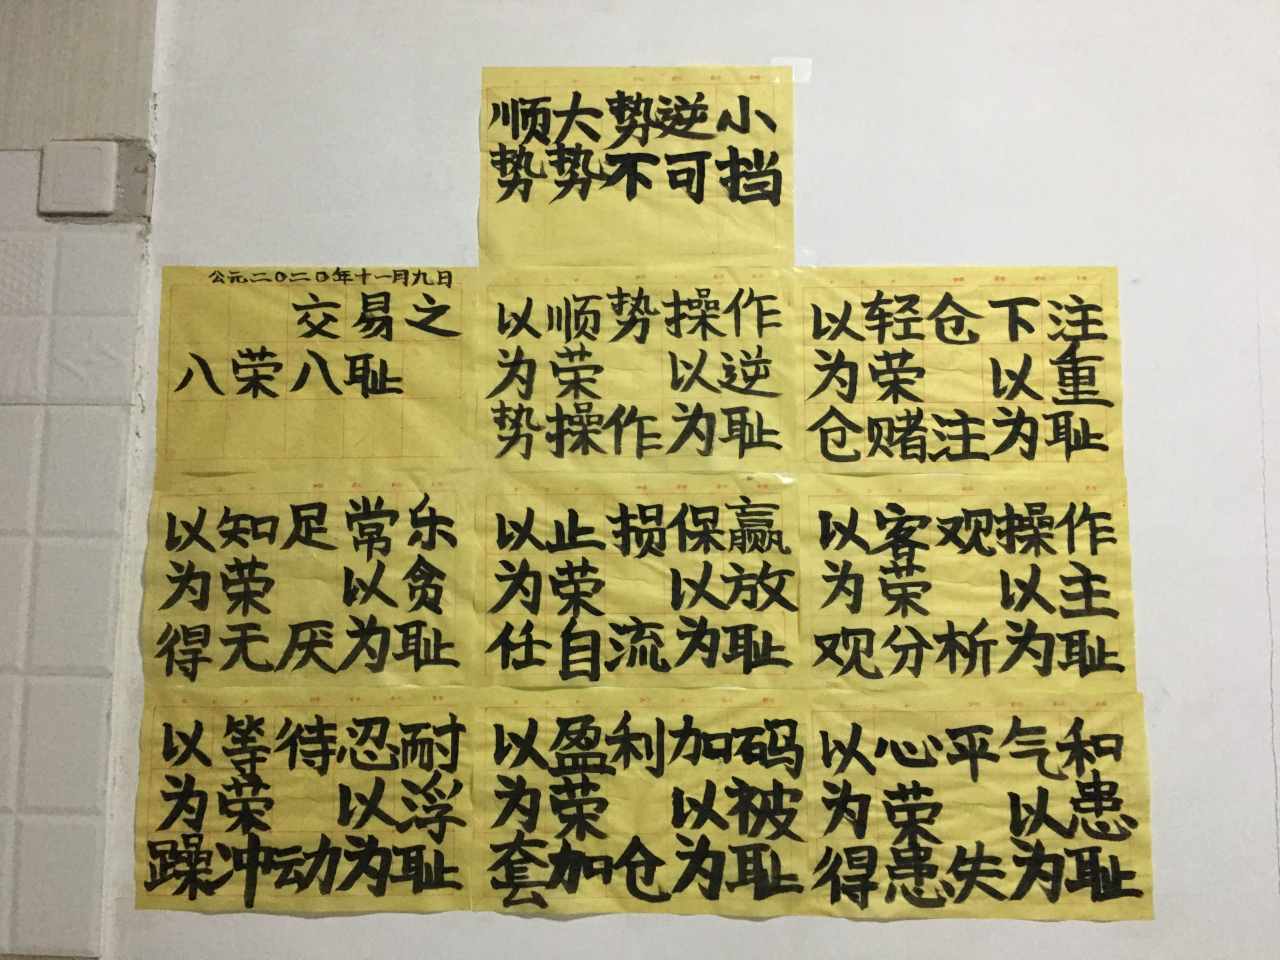 顺大势逆小
势势不可挡
公元二〇二〇年十一月九日
交易之
八荣八耻
以顺势操作
为荣 以逆
势操作为耻
以轻仓下注
为荣 以重
仓赌注为耻
以知足常乐
为荣 以贪
得无厌为耻
以止损保赢
为荣 以放
任自流为耻
以客观操作
为荣 以主
观分析为耻
以等待忍耐
为荣 以浮
躁冲动为耻
以盈利加码
为荣 以被
套加仓为耻
以心平气和
为荣 以患
得患失为耻